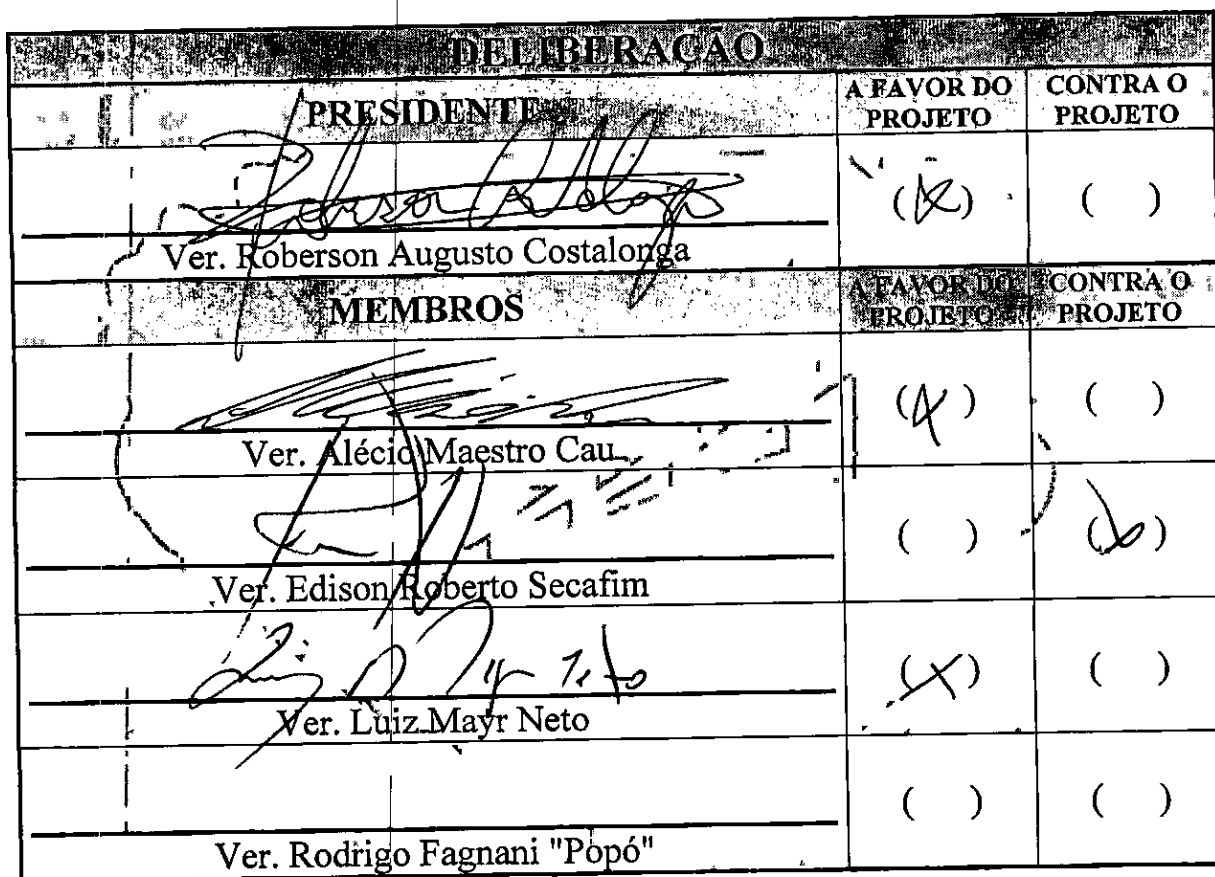 DELIBERAÇÃO
PRESIDENTE A FAVOR DO PROJETO CONTRA O PROJETO
(X) ( )
Ver. Roberson Augusto Costalonga
MEMBROS A FAVOR DO PROJETO CONTRA O PROJETO
(X) ( )
Ver. Alécio Maestro Cau
( ) (X)
Ver. Edison Roberto Secafim
(X) ( )
Ver. Luiz Mayr Neto
( ) ( )
Ver. Rodrigo Fagnani "Popó"